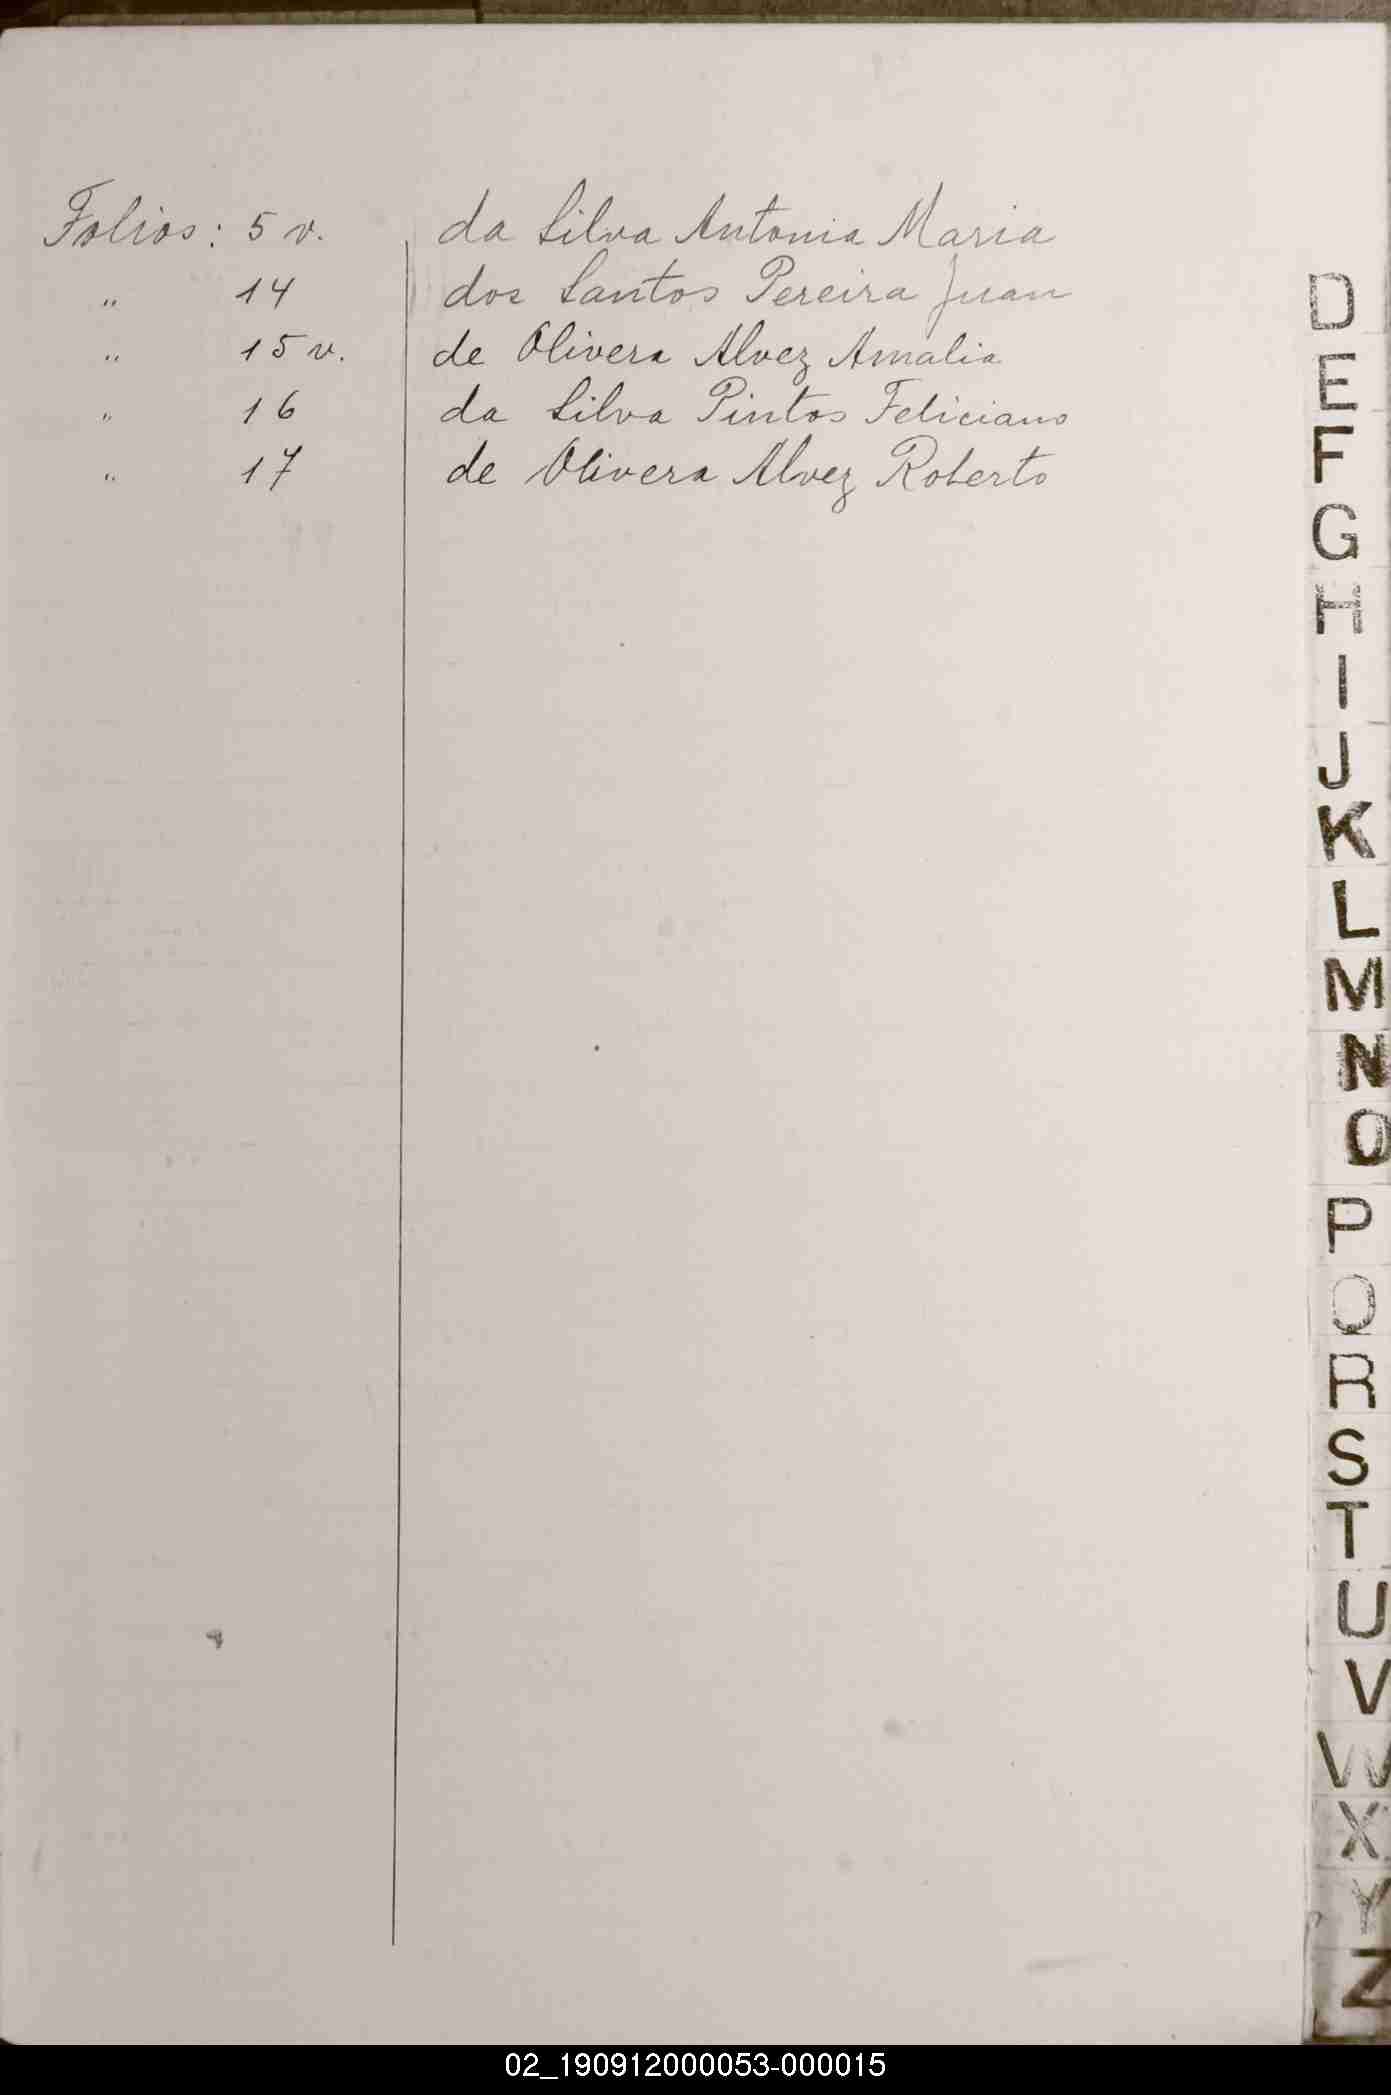 Folios: 5 v. da Silva Antonia Maria
" 14 dos Santos Pereira Juan
" 15 v. de Olivera Alvez Amalia
" 16 da Silva Pintos Feliciano
" 17 de Olivera Alvez Roberto
D
E
F
G
H
I
J
K
L
M
N
O
P
Q
R
S
T
U
V
W
X
Y
Z
02_190912000053-000015